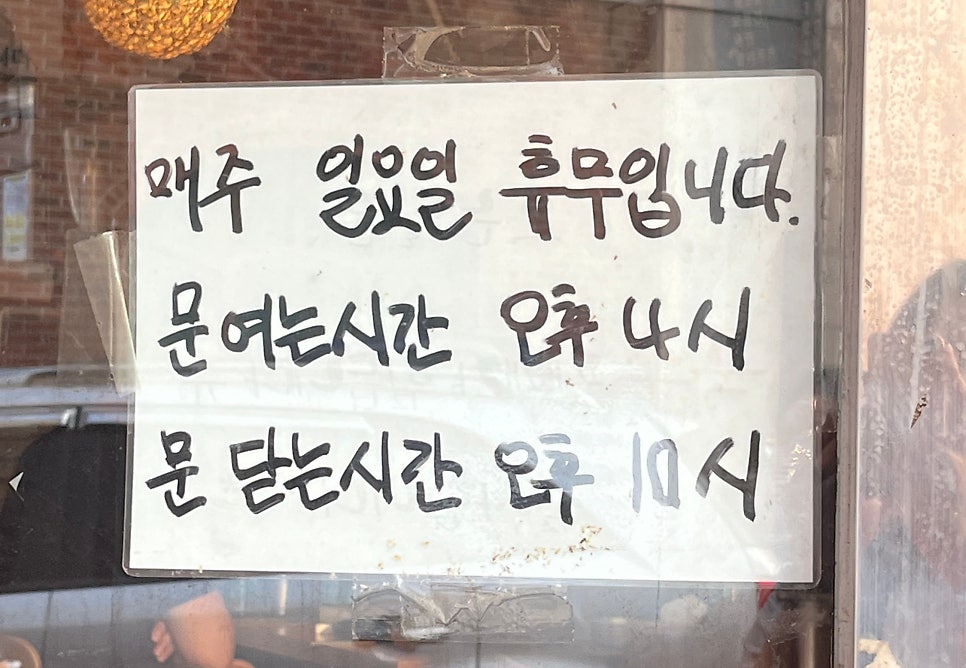 매주 일요일 휴무입니다.
문여는시간 오후 4시
문 닫는시간 오후 10시